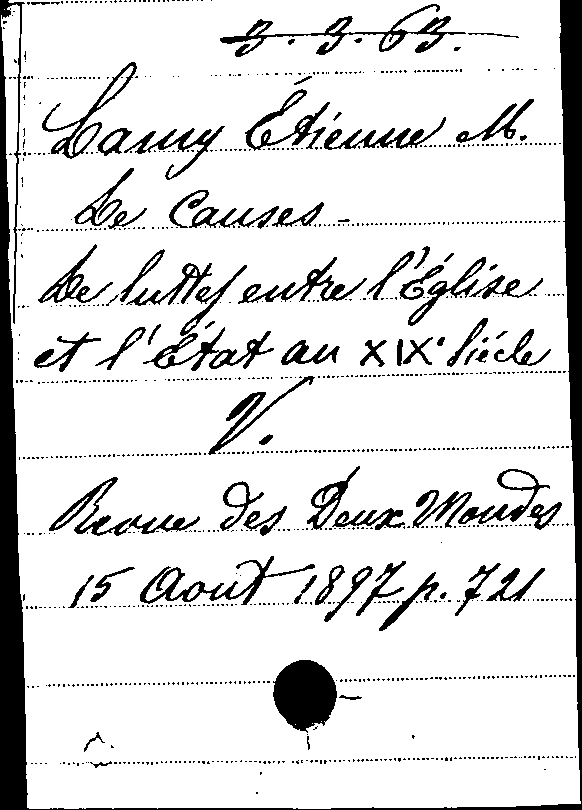 3.3.63.
Lamy Étienne M.
De Causes -
De luttes entre l'Église
et l'État au XIX° Siécle
V.
Revue des Deux Mondes
15 Aout 1897 p. 721